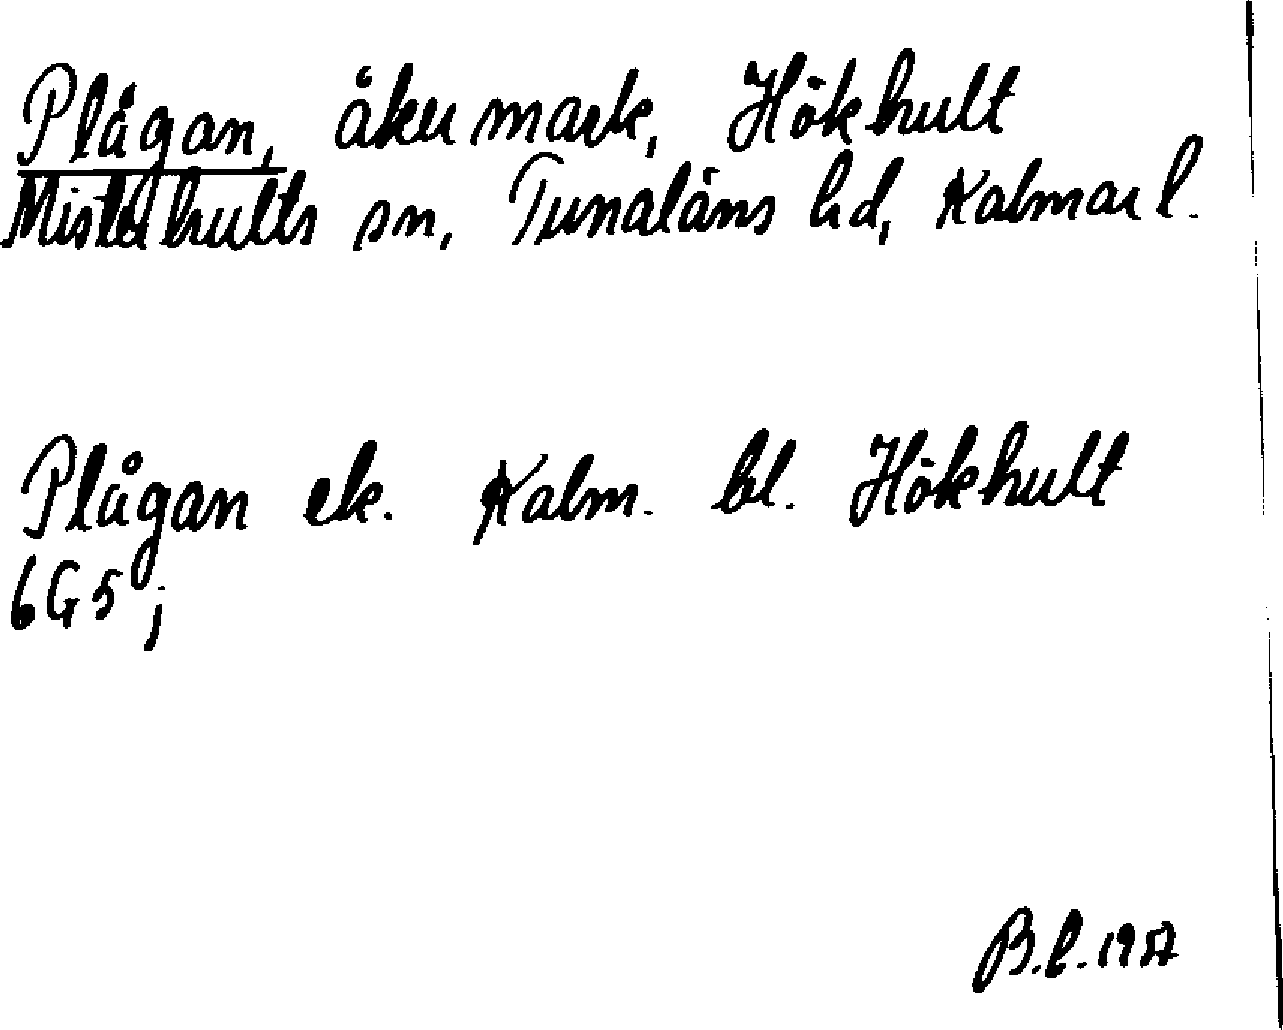 Plågan, åkermark, Hökhult
Misterhults sn, Tunaläns hd, Kalmar l.
Plågan ek. Kalm. bl. Hökhult
6G5;
B.L. 1957